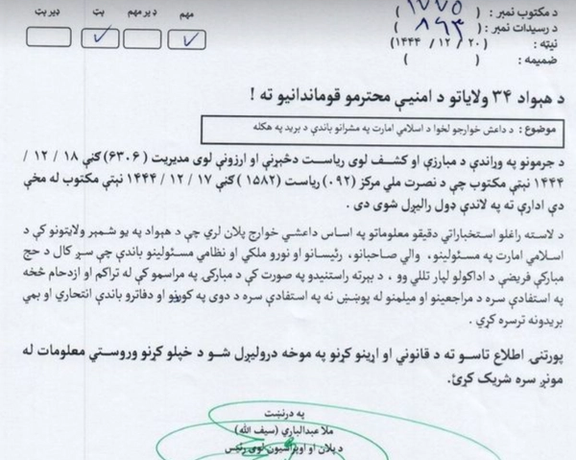 د مکتوب نمبر : ( ۱۷۷۵ )
د رسیدات نمبر : ( ۸۹۳ )
نېټه : ( ۲۰ / ۱۲ / ۱۴۴۴ )
ضمیمه : ( )
مهم ډیر مهم پټ ډیر پټ
د هېواد ۳۴ ولایاتو د امنیې محترمو قوماندانیو ته !
موضوع : د داعش خوارجو لخوا د اسلامي امارت په مشرانو باندې د برید په هکله
د جرمونو په وړاندې د مبارزې او کشف لوی ریاست دڅېړنې او ارزونې لوی مدیریت ( ۶۳۰۶) ګڼې ۱۸ / ۱۲ /
۱۴۴۴ نېټې مکتوب چې د نصرت ملي مرکز (۰۹۲) ریاست ( ۱۵۸۲ ) ګڼې ۱۷ / ۱۲ / ۱۴۴۴ نېټې مکتوب له مخې
دې ادارې ته په لاندې ډول رالیږل شوی دی .
د لاسته راغلو استخباراتي دقیقو معلوماتو په اساس داعشي خوارج پلان لري چې د هېواد په یو شمېر ولایتونو کې د
اسلامي امارت په مسئولینو، والي صاحبانو، رئیسانو او نورو ملکي او نظامي مسئولینو باندې چې سږ کال د حج
مبارکې فریضې د اداکولو لپار تللي وو ، د بېرته راستنیدو په صورت کې د مبارکۍ په مراسمو کې له تراکم او ازدحام څخه
په استفادې سره د مراجعینو او میلمنو له پوښښ نه په استفادې سره د دوی په کورونو او دفاترو باندې انتحاري او بمي
بریدونه ترسره کړي .
پورتنۍ اطلاع تاسو ته د قانوني او اړینو کړنو په موخه درولیږل شو د خپلو کړنو وروستي معلومات له
مونږ سره شریک کړئ.
په درنښت
ملا عبدالباري (سیف الله)
د پلان او اوپراسیون لوی رئیس